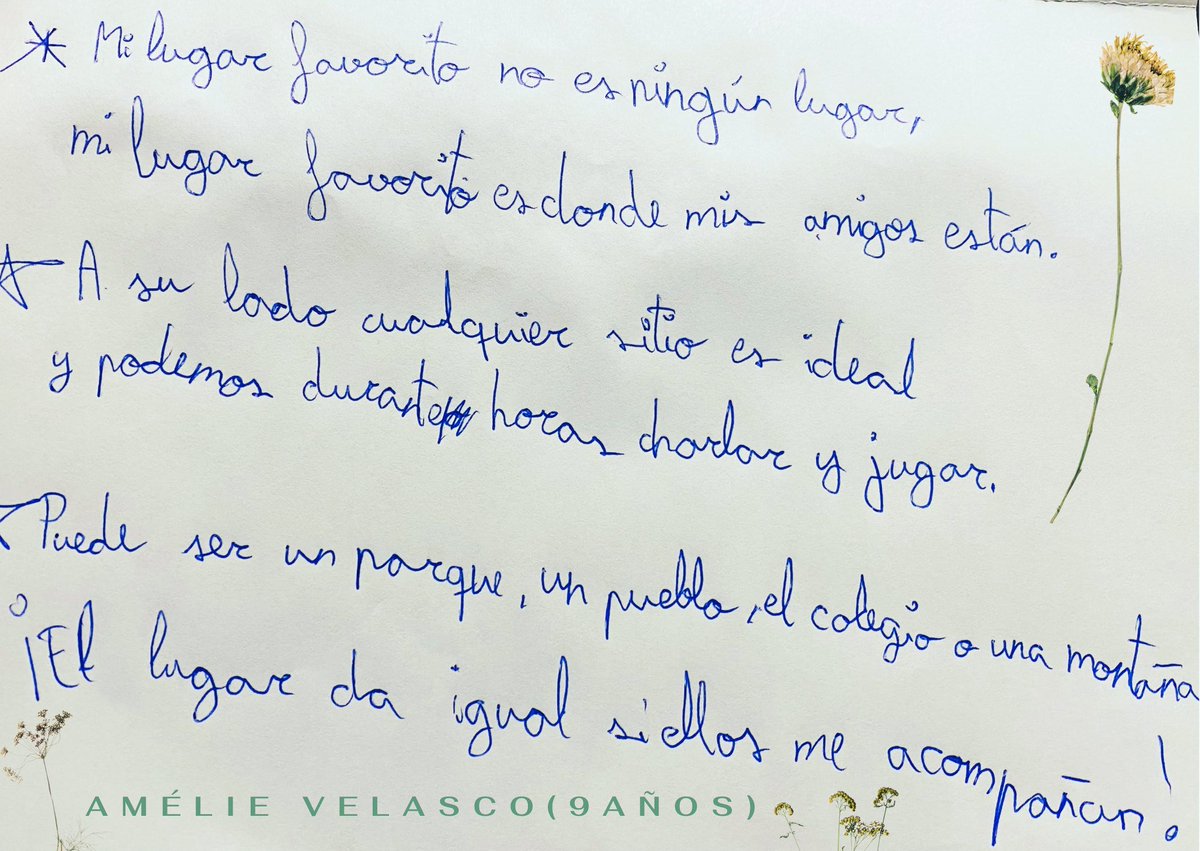 * Mi lugar favorito no es ningún lugar,
mi lugar favorito es donde mis amigos están.
A su lado cualquier sitio es ideal
y podemos durante horas charlar y jugar.
Puede ser un parque, un pueblo, el colegio o una montaña
¡El lugar da igual si ellos me acompañan!
AMÉLIE VELASCO(9AÑOS)